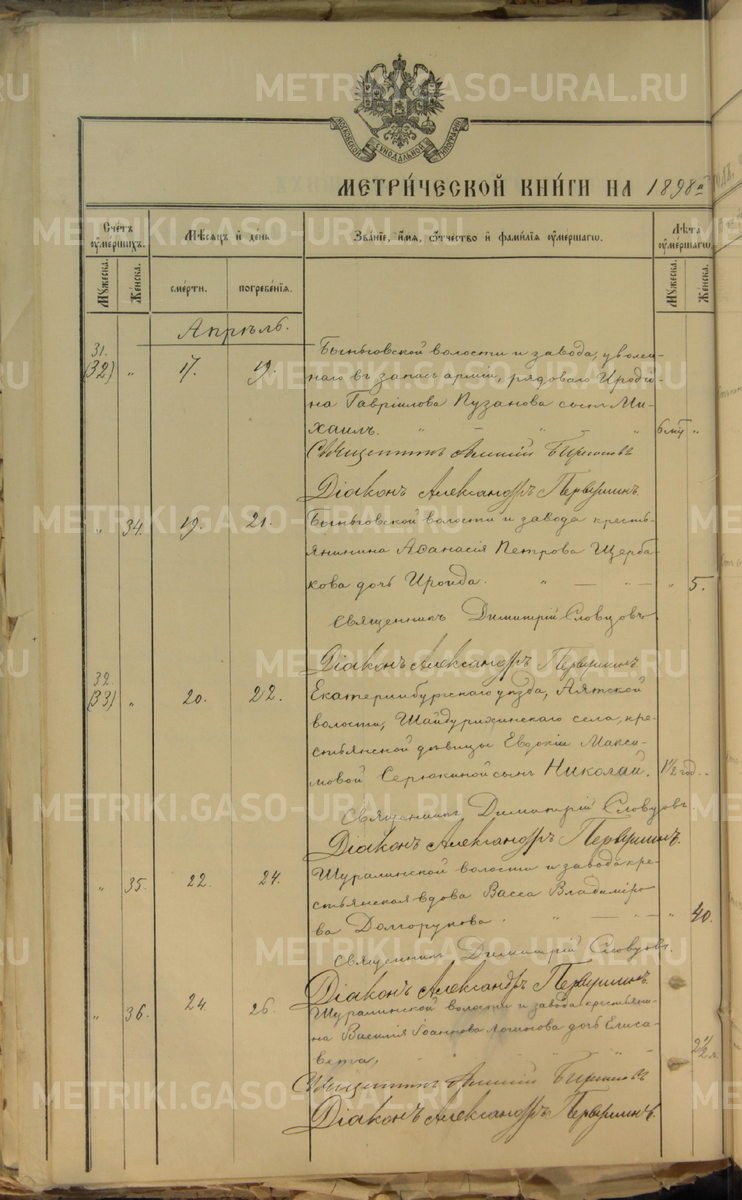 METRIKI.GASO-URAL.RU
МОСКОВСКОЙ СѴНОДАЛЬНОЙ ТИПОГРАФІИ
МЕТРИ́ЧЕСКОЙ КНИ́ГИ НА 1898 г.
Сче́тъ ᲂу҆ме́ршихъ.
Мѣ́сѧцъ и҆ де́нь
Зва́нїе, и҆́мѧ, ѻ҆́тчество и҆ фамилїѧ ᲂу҆ме́ршагѡ.
Лѣ́та ᲂу҆ме́ршагѡ.
Мꙋ́жеска.
Же́нска.
сме́рти.
погребе́нїѧ.
Мꙋ́жеска.
Же́нска.
Апрѣль.
31. (32) „ 17. 19. Быньговской волости и завода, уволен-
наго въ запасъ арміи, рядоваго Иродіо-
на Гавріилова Пузанова сынъ Ми-
хаилъ. „ „ „ 6 лѣтъ „
Священникъ
Діаконъ Александръ Первушинъ.
„ 34. 19. 21. Быньговской волости и завода кресть-
янинина Аѳанасія Петрова Щерба-
кова дочь Ираида. „ — „ — „ 5.
Священникъ Димитрій Словцовъ
Діаконъ Александръ Первушинъ
32. (33) „ 20. 22. Екатеринбургскаго уѣзда, Аятской
волости, Шайдурихинскаго села, кре-
стьянской дѣвицы Евдокіи Макси-
мовой Серюкиной сынъ Николай. 1½ год. „
Священникъ Димитрій Словцовъ
Діаконъ Александръ Первушинъ.
„ 35. 22. 24. Шуралинской волости и завода кре-
стьянская вдова Васса Владиміро-
ва Долгорукова „ „ — „ — „ 40.
Священникъ Димитрій Словцовъ.
Діаконъ Александръ Первушинъ.
„ 36. 24. 26. Шуралинской волости и завода крестьяни-
на Василія Іоаннова Логинова дочь Елиса-
вета, „ „ „ 2½ л.
Священникъ
Діаконъ Александръ Первушинъ.